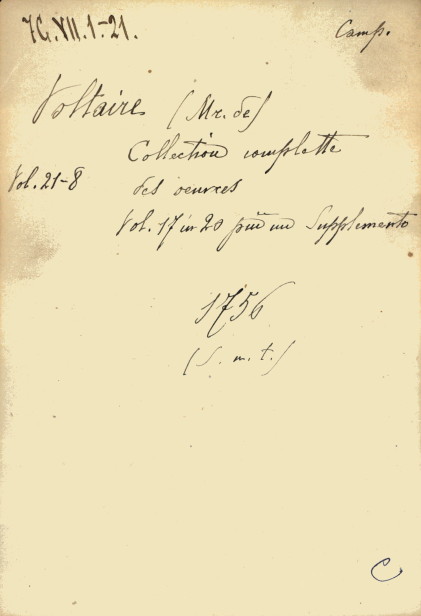 7G.VII.1-21.
Camp.
Voltaire (Mr. de)
Collection complette
Vol. 21-8
des oeuvres
Vol. 17 in 20 più un Supplemento
1756
(S. n. t.)
C